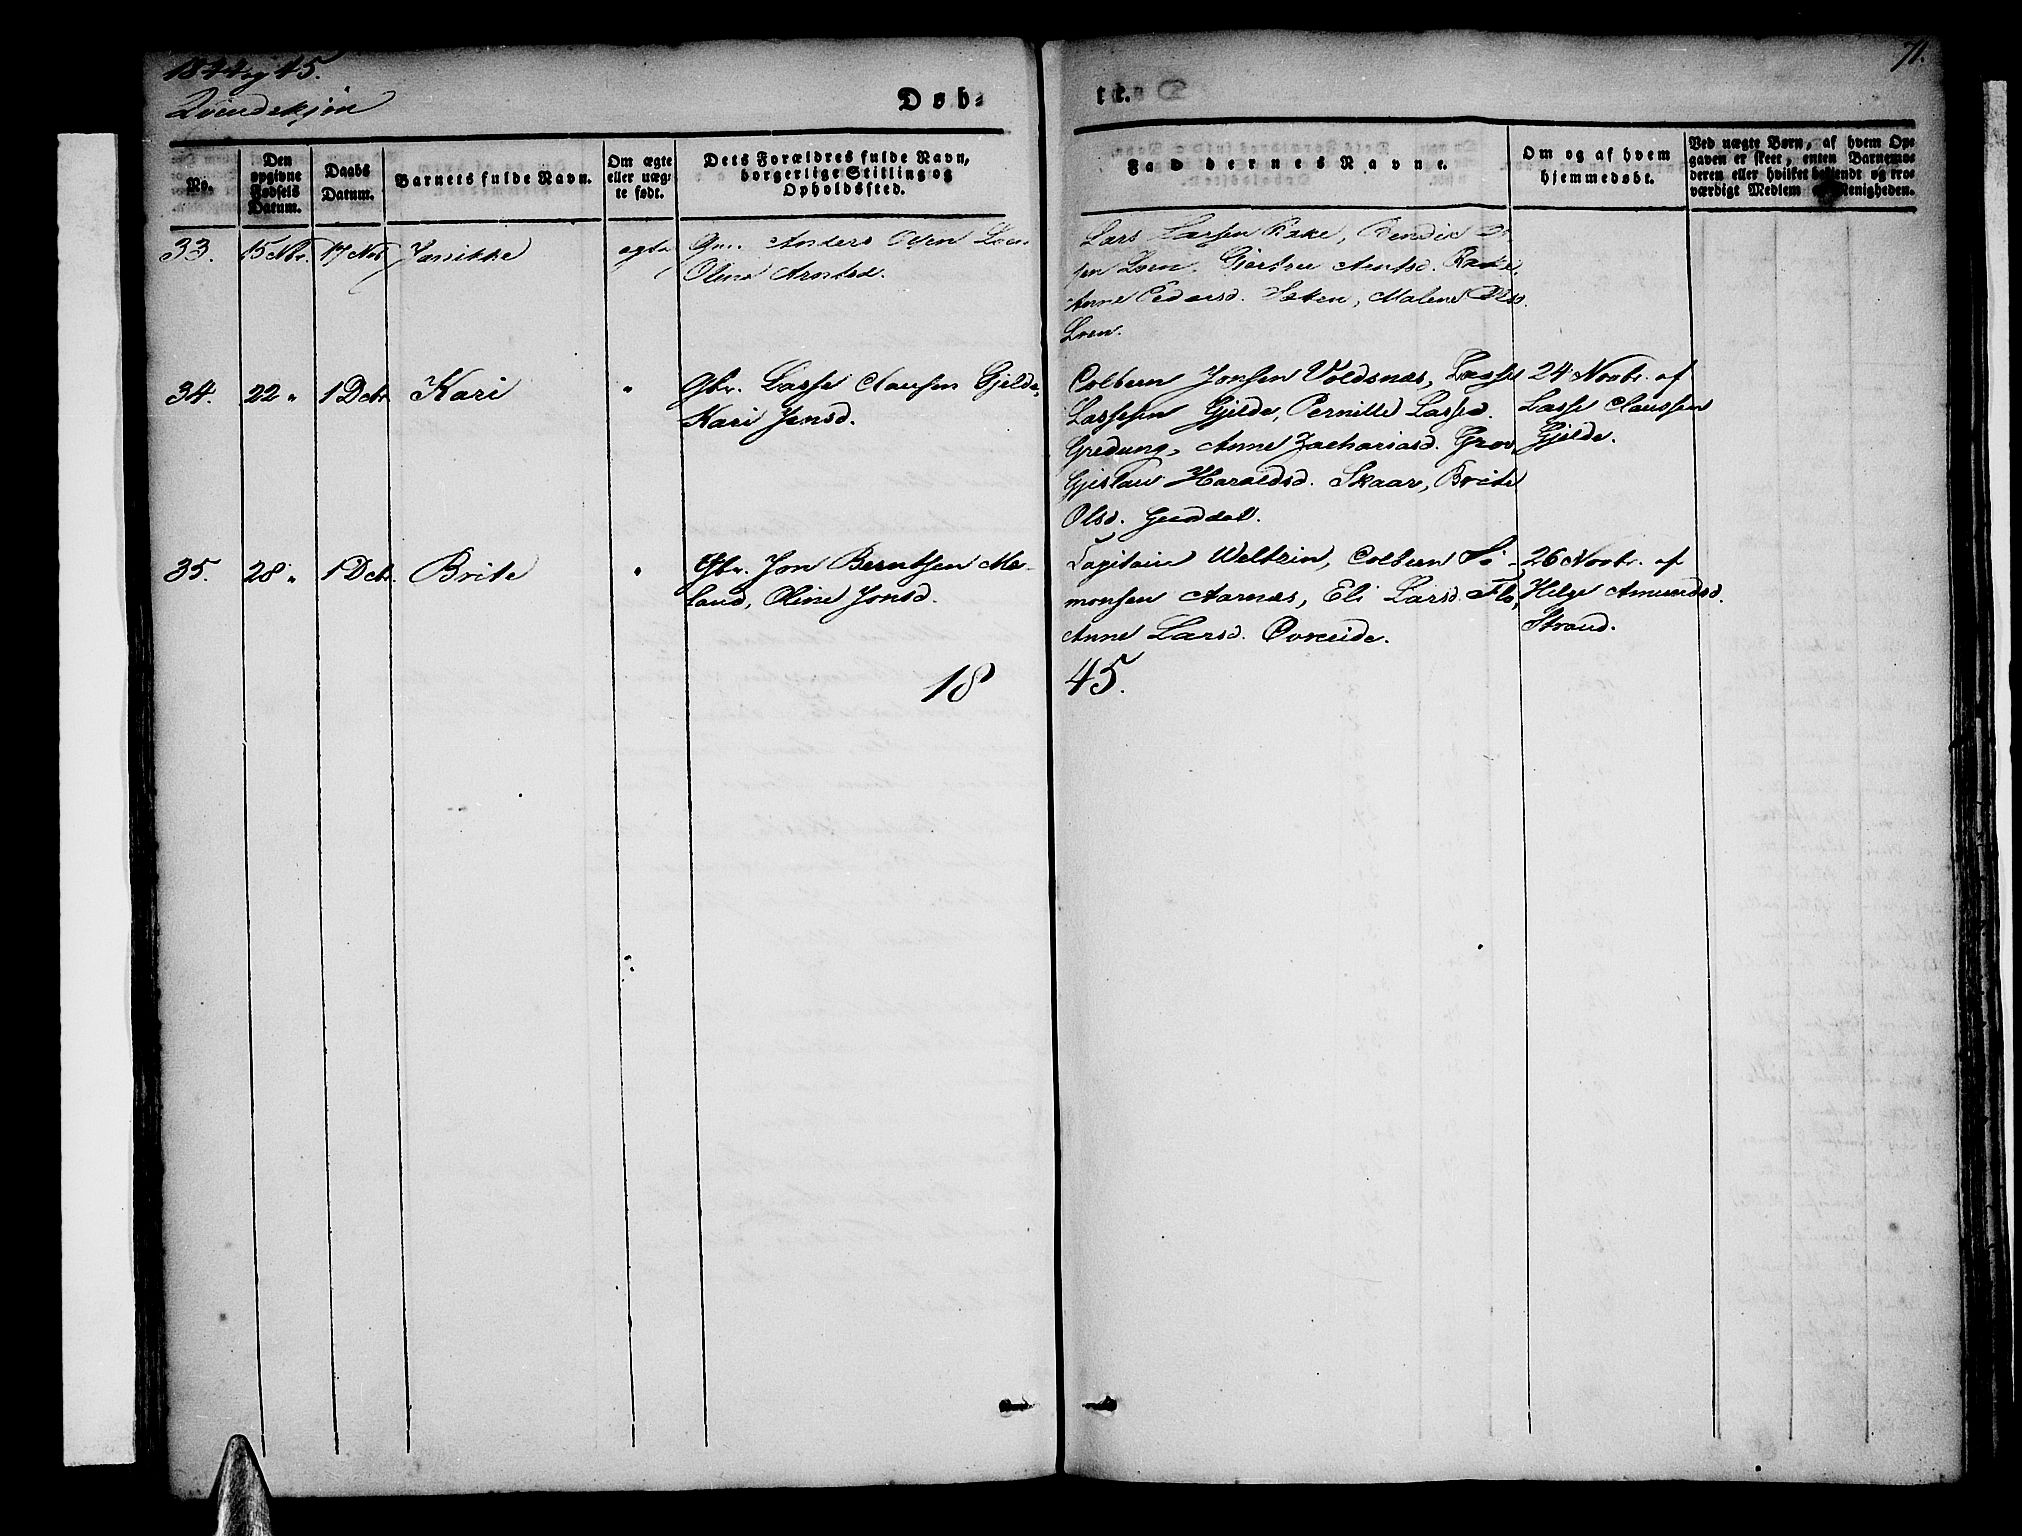 1844 og 45.
71.
Qvindekjön
Døb-
te.
No.
Den opgivne Fødsels Datum.
Daabs Datum.
Barnets fulde Navn.
Om ægte eller uægte født.
Dets Forældres fulde Navn, borgerlige Stilling og Opholdssted.
Faddernes Navne.
Om og af hvem hjemmedøbt.
Ved uægte Børn, af hvem Opgaven er skeet, enten Barnemoderen eller hvilket bekjendt og troværdigt Medlem af Menigheden.
33. 15 Nbr. 17 Nob Jonikke egte Gm. Anders Loen
Oline Arntsd.
Lars Larsen Rake, Bendix
sen Loen. Gjertrue Arntsd. Rake,
Anne Pedersd. Malene Olsd.
Loen.
34. 22 " 1 Decbr. Kari " Gbr. Lasse Claussen Gjelde,
Kari Jonsd.
Colbeen Jonsen Voldsnæs, Lasse
Lassesen Gjelde, Pernille Lassed.
Gredung, Anne Zachariasd. Grov,
Haraldsd. Skaar, Brite
Olsd.
24 Novbr. af
Lasse Claussen
Gjelde.
35. 28 " 1 Decbr. Brite " Gbr. Jon Berntsen Me-
land, Oline Jonsd.
Capitain Weltzin, Colbeen Si-
monsen Aarnæs, Eli Larsd. Flo,
Anne Larsd. Ovreeide.
26 Novbr. af
Helge Amundsd.
Strand.
18 45.